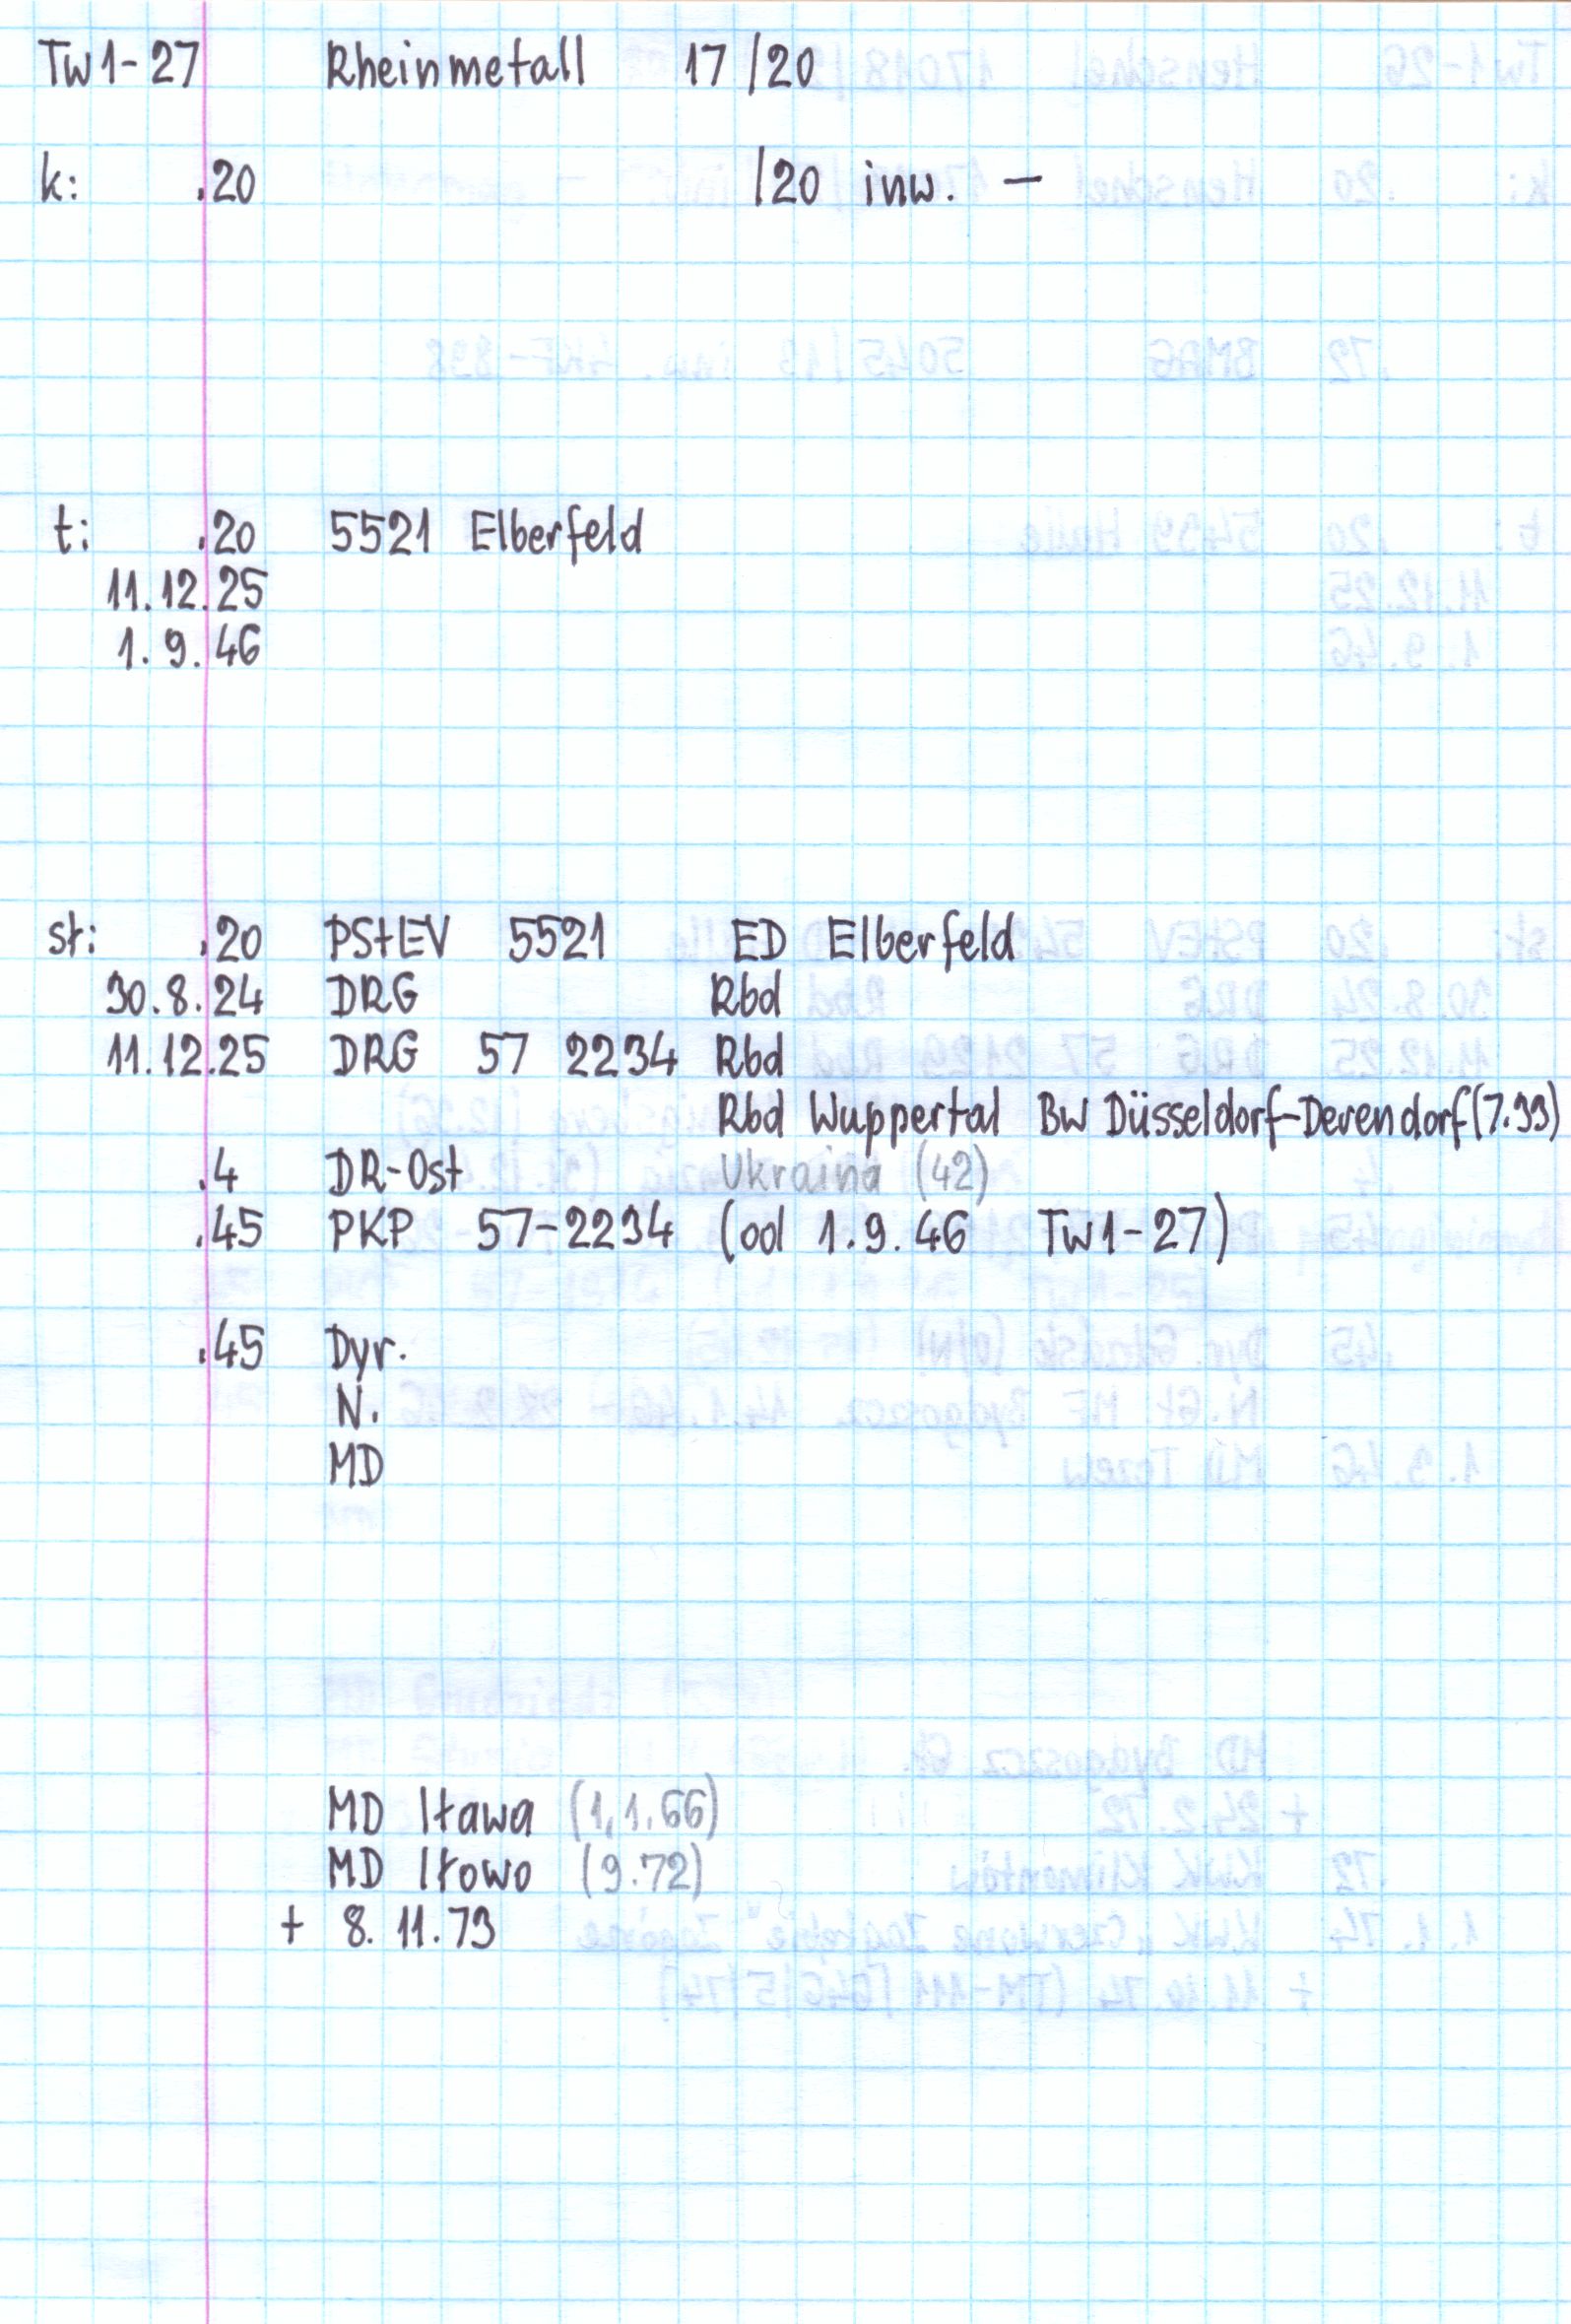 Tw1-27 Rheinmetall 17/20
k: .20 /20 inw. –
t: .20 5521 Elberfeld
11.12.25
1.9.46
st: .20 PStEV 5521 ED Elberfeld
30.8.24 DRG Rbd
11.12.25 DRG 57 2234 Rbd
Rbd Wuppertal BW Düsseldorf-Derendorf (7.33)
.4 DR-Ost Ukraina (42)
.45 PKP 57-2234 (od 1.9.46 Tw1-27)
.45 Dyr.
N.
MD
MD Iława (1.1.66)
MD Iłowo (9.72)
+ 8.11.73